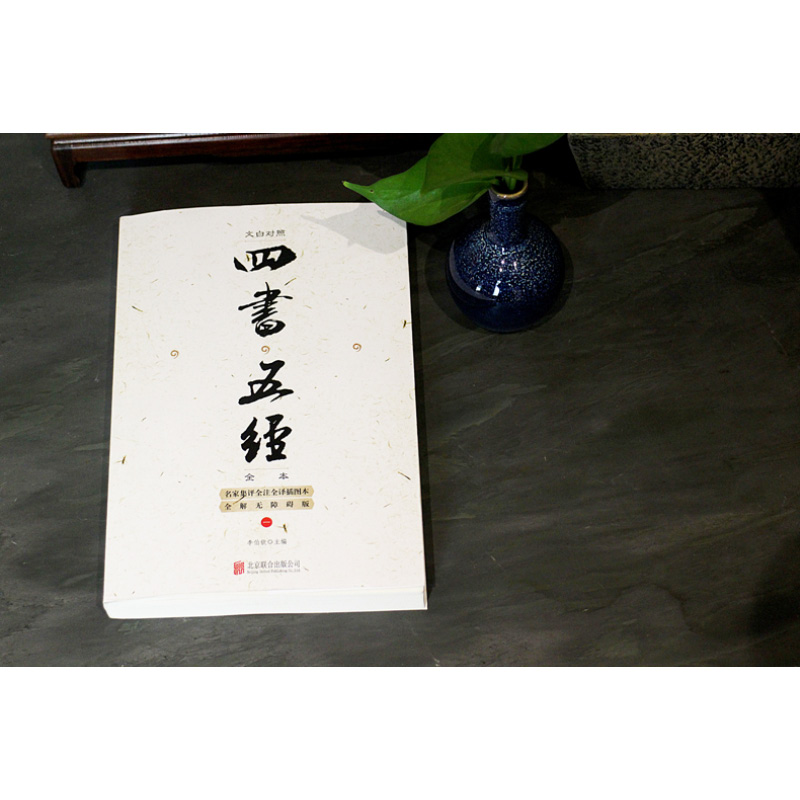 文白对照
四書
五經
全本
名家集评全注全译插图本
全解无障碍版
一
李伯钦◎主编
北京联合出版公司